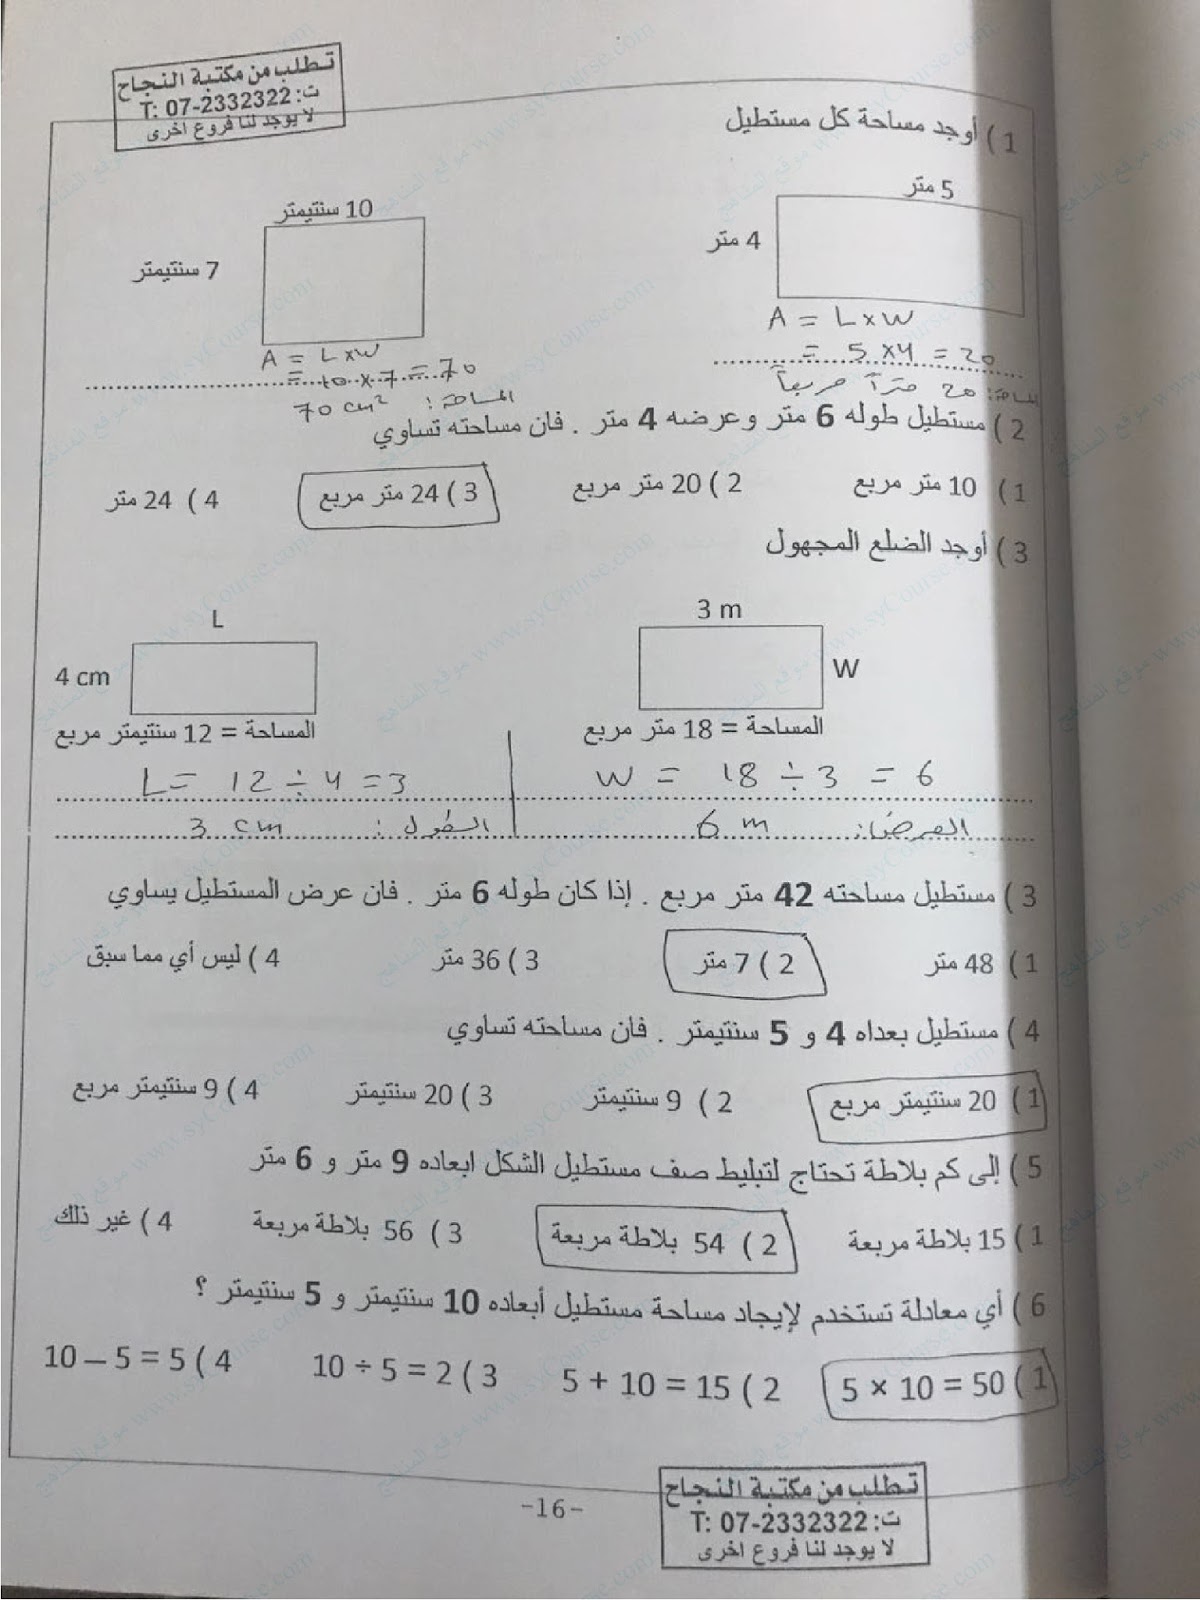 تطلب من مكتبة النجاح
ت: T: 07-2332322
لا يوجد لنا فروع اخرى
1 ) أوجد مساحة كل مستطيل
5 متر
4 متر
A = L x W
= 5 x 4 = 20
المساحة: 20 متراً مربعاً
10 سنتيمتر
7 سنتيمتر
A = L x W
= 10 x 7 = 70
المساحة: 70 cm²
2 ) مستطيل طوله 6 متر وعرضه 4 متر . فان مساحته تساوي
1 ) 10 متر مربع 2 ) 20 متر مربع 3 ) 24 متر مربع 4 ) 24 متر
3 ) أوجد الضلع المجهول
3 m
W
المساحة = 18 متر مربع
W = 18 ÷ 3 = 6
العرض: 6 m
L
4 cm
المساحة = 12 سنتيمتر مربع
L = 12 ÷ 4 = 3
الطول: 3 cm
3 ) مستطيل مساحته 42 متر مربع . إذا كان طوله 6 متر . فان عرض المستطيل يساوي
1 ) 48 متر 2 ) 7 متر 3 ) 36 متر 4 ) ليس أي مما سبق
4 ) مستطيل بعداه 4 و 5 سنتيمتر . فان مساحته تساوي
1 ) 20 سنتيمتر مربع 2 ) 9 سنتيمتر 3 ) 20 سنتيمتر 4 ) 9 سنتيمتر مربع
5 ) إلى كم بلاطة تحتاج لتبليط صف مستطيل الشكل ابعاده 9 متر و 6 متر
1 ) 15 بلاطة مربعة 2 ) 54 بلاطة مربعة 3 ) 56 بلاطة مربعة 4 ) غير ذلك
6 ) أي معادلة تستخدم لإيجاد مساحة مستطيل أبعاده 10 سنتيمتر و 5 سنتيمتر ؟
1 ) 5 × 10 = 50 2 ) 5 + 10 = 15 3 ) 10 ÷ 5 = 2 4 ) 10 – 5 = 5
-16-
تطلب من مكتبة النجاح
ت: T: 07-2332322
لا يوجد لنا فروع اخرى
موقع المناهج www.syCourse.com